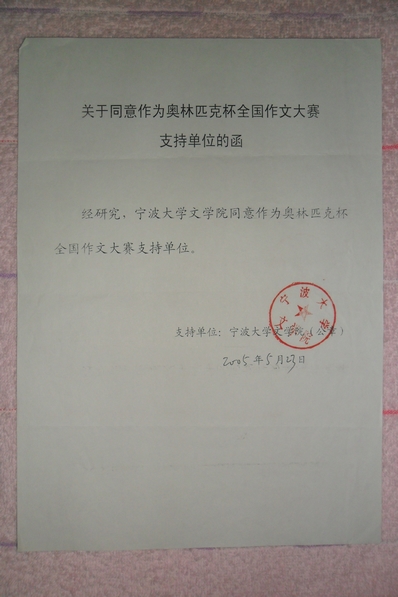 关于同意作为奥林匹克杯全国作文大赛
支持单位的函
经研究，宁波大学文学院同意作为奥林匹克杯
全国作文大赛支持单位。
支持单位：宁波大学文学院（公章）
2005年5月23日
宁波大学文学院